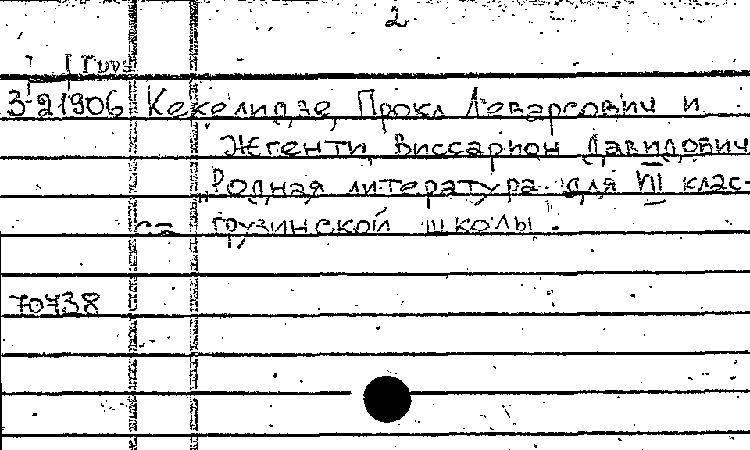 2
З-21906 Кекелидзе, Прокл Леварсович и
Жгенти, Виссарион Давидович
„Родная литература для VII клас-
са грузинской школы.
70738